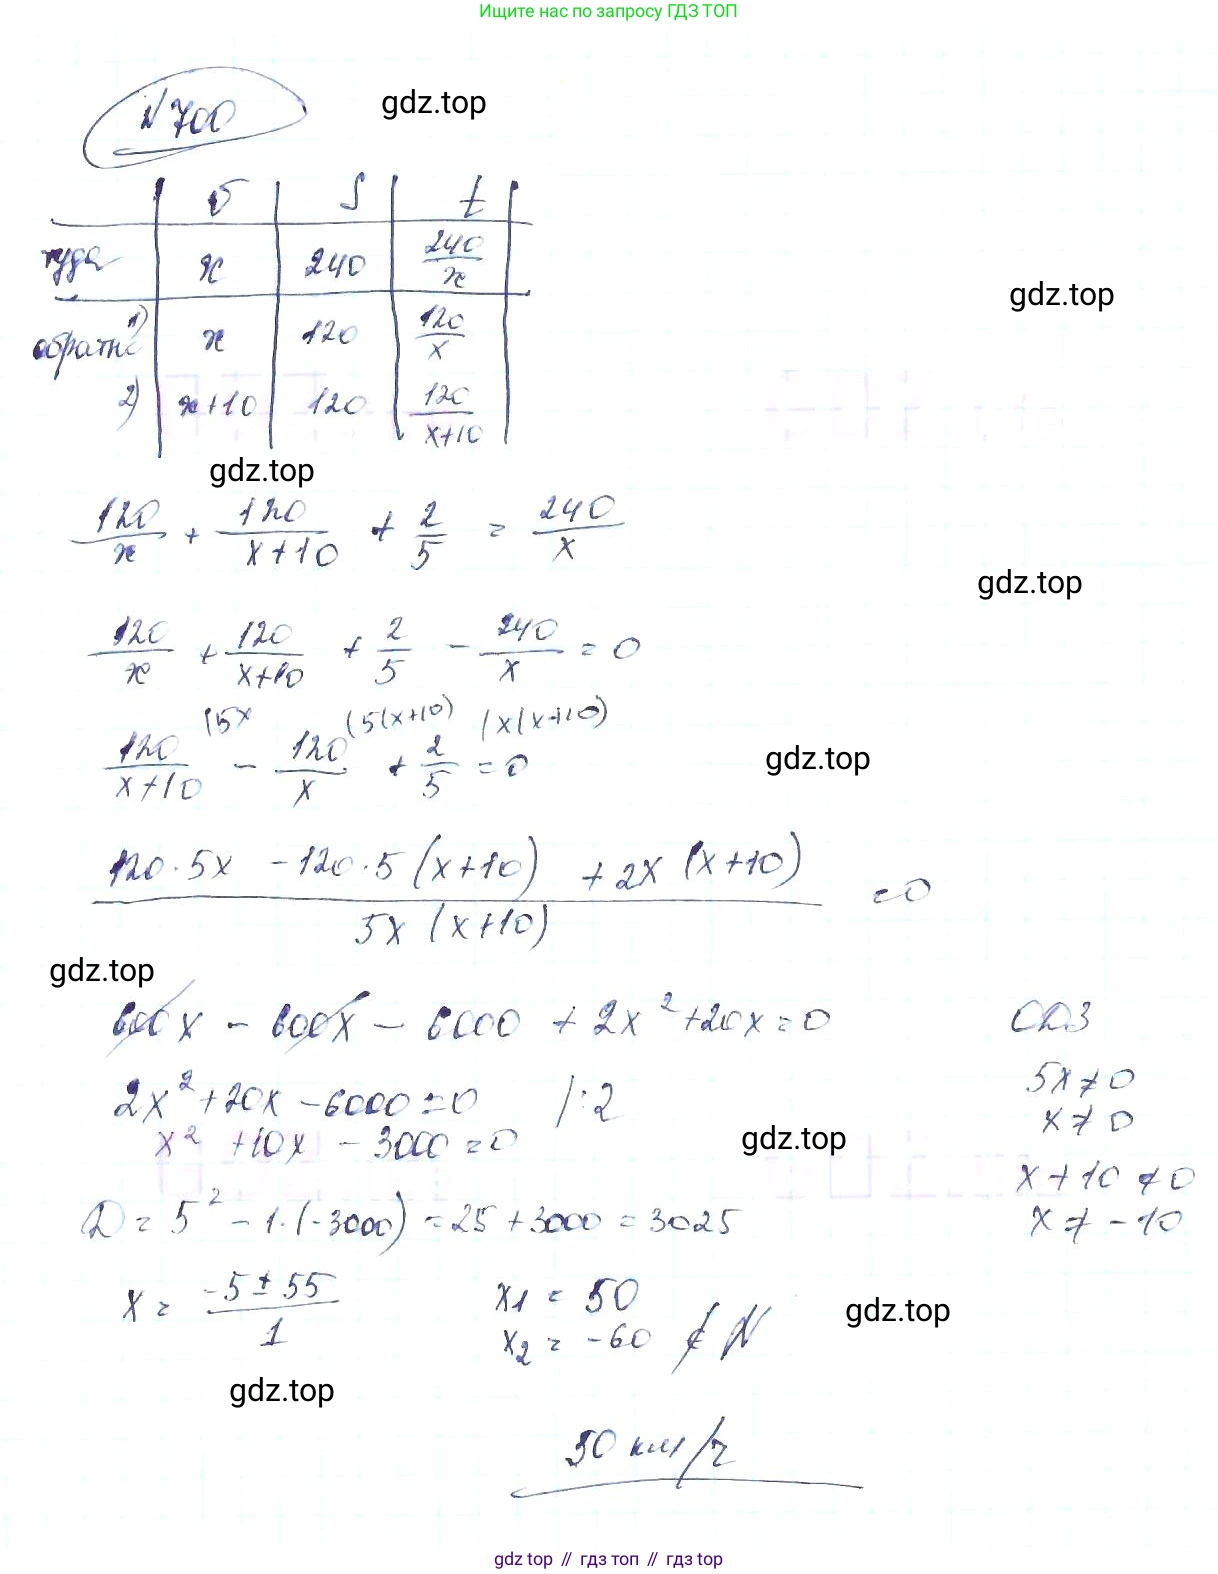 Ищите нас по запросу ГДЗ ТОП
N 700
gdz.top
v S t
туда x 240 240/x
gdz.top
обратно 1) x 120 120/x
2) x+10 120 120/(x+10)
gdz.top
120/x + 120/(x+10) + 2/5 = 240/x
gdz.top
120/x + 120/(x+10) + 2/5 - 240/x = 0
(5x (5(x+10) (x(x+10)
120/(x+10) - 120/x + 2/5 = 0
gdz.top
(120·5x - 120·5(x+10) + 2x(x+10))/(5x(x+10)) = 0
gdz.top
600x - 600x - 6000 + 2x² + 20x = 0
ОДЗ
5x ≠ 0
x ≠ 0
x + 10 ≠ 0
x ≠ -10
2x² + 20x - 6000 = 0 /:2
x² + 10x - 3000 = 0
gdz.top
D = 5² - 1·(-3000) = 25 + 3000 = 3025
x = (-5 ± 55)/1
x1 = 50
x2 = -60 ∉ N
gdz.top
gdz.top
50 км/ч
gdz top // гдз топ // гдз top